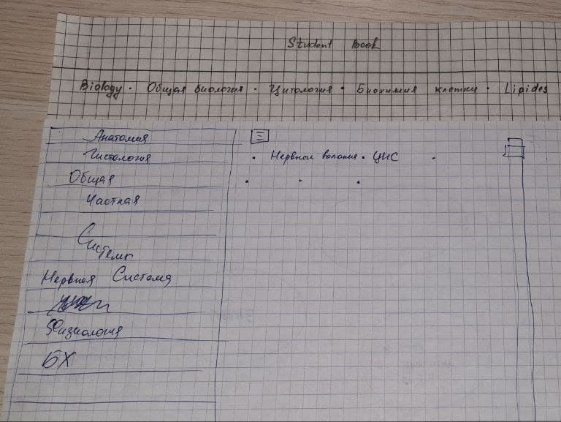 Student Book
Biology · Общая биология · Цитология · Биохимия клетки · Lipides
Анатомия
Гистология
Общая
Частная
Системы
Нервная Система
Физиология
БХ
· Нервные волокна · ЦНС ·